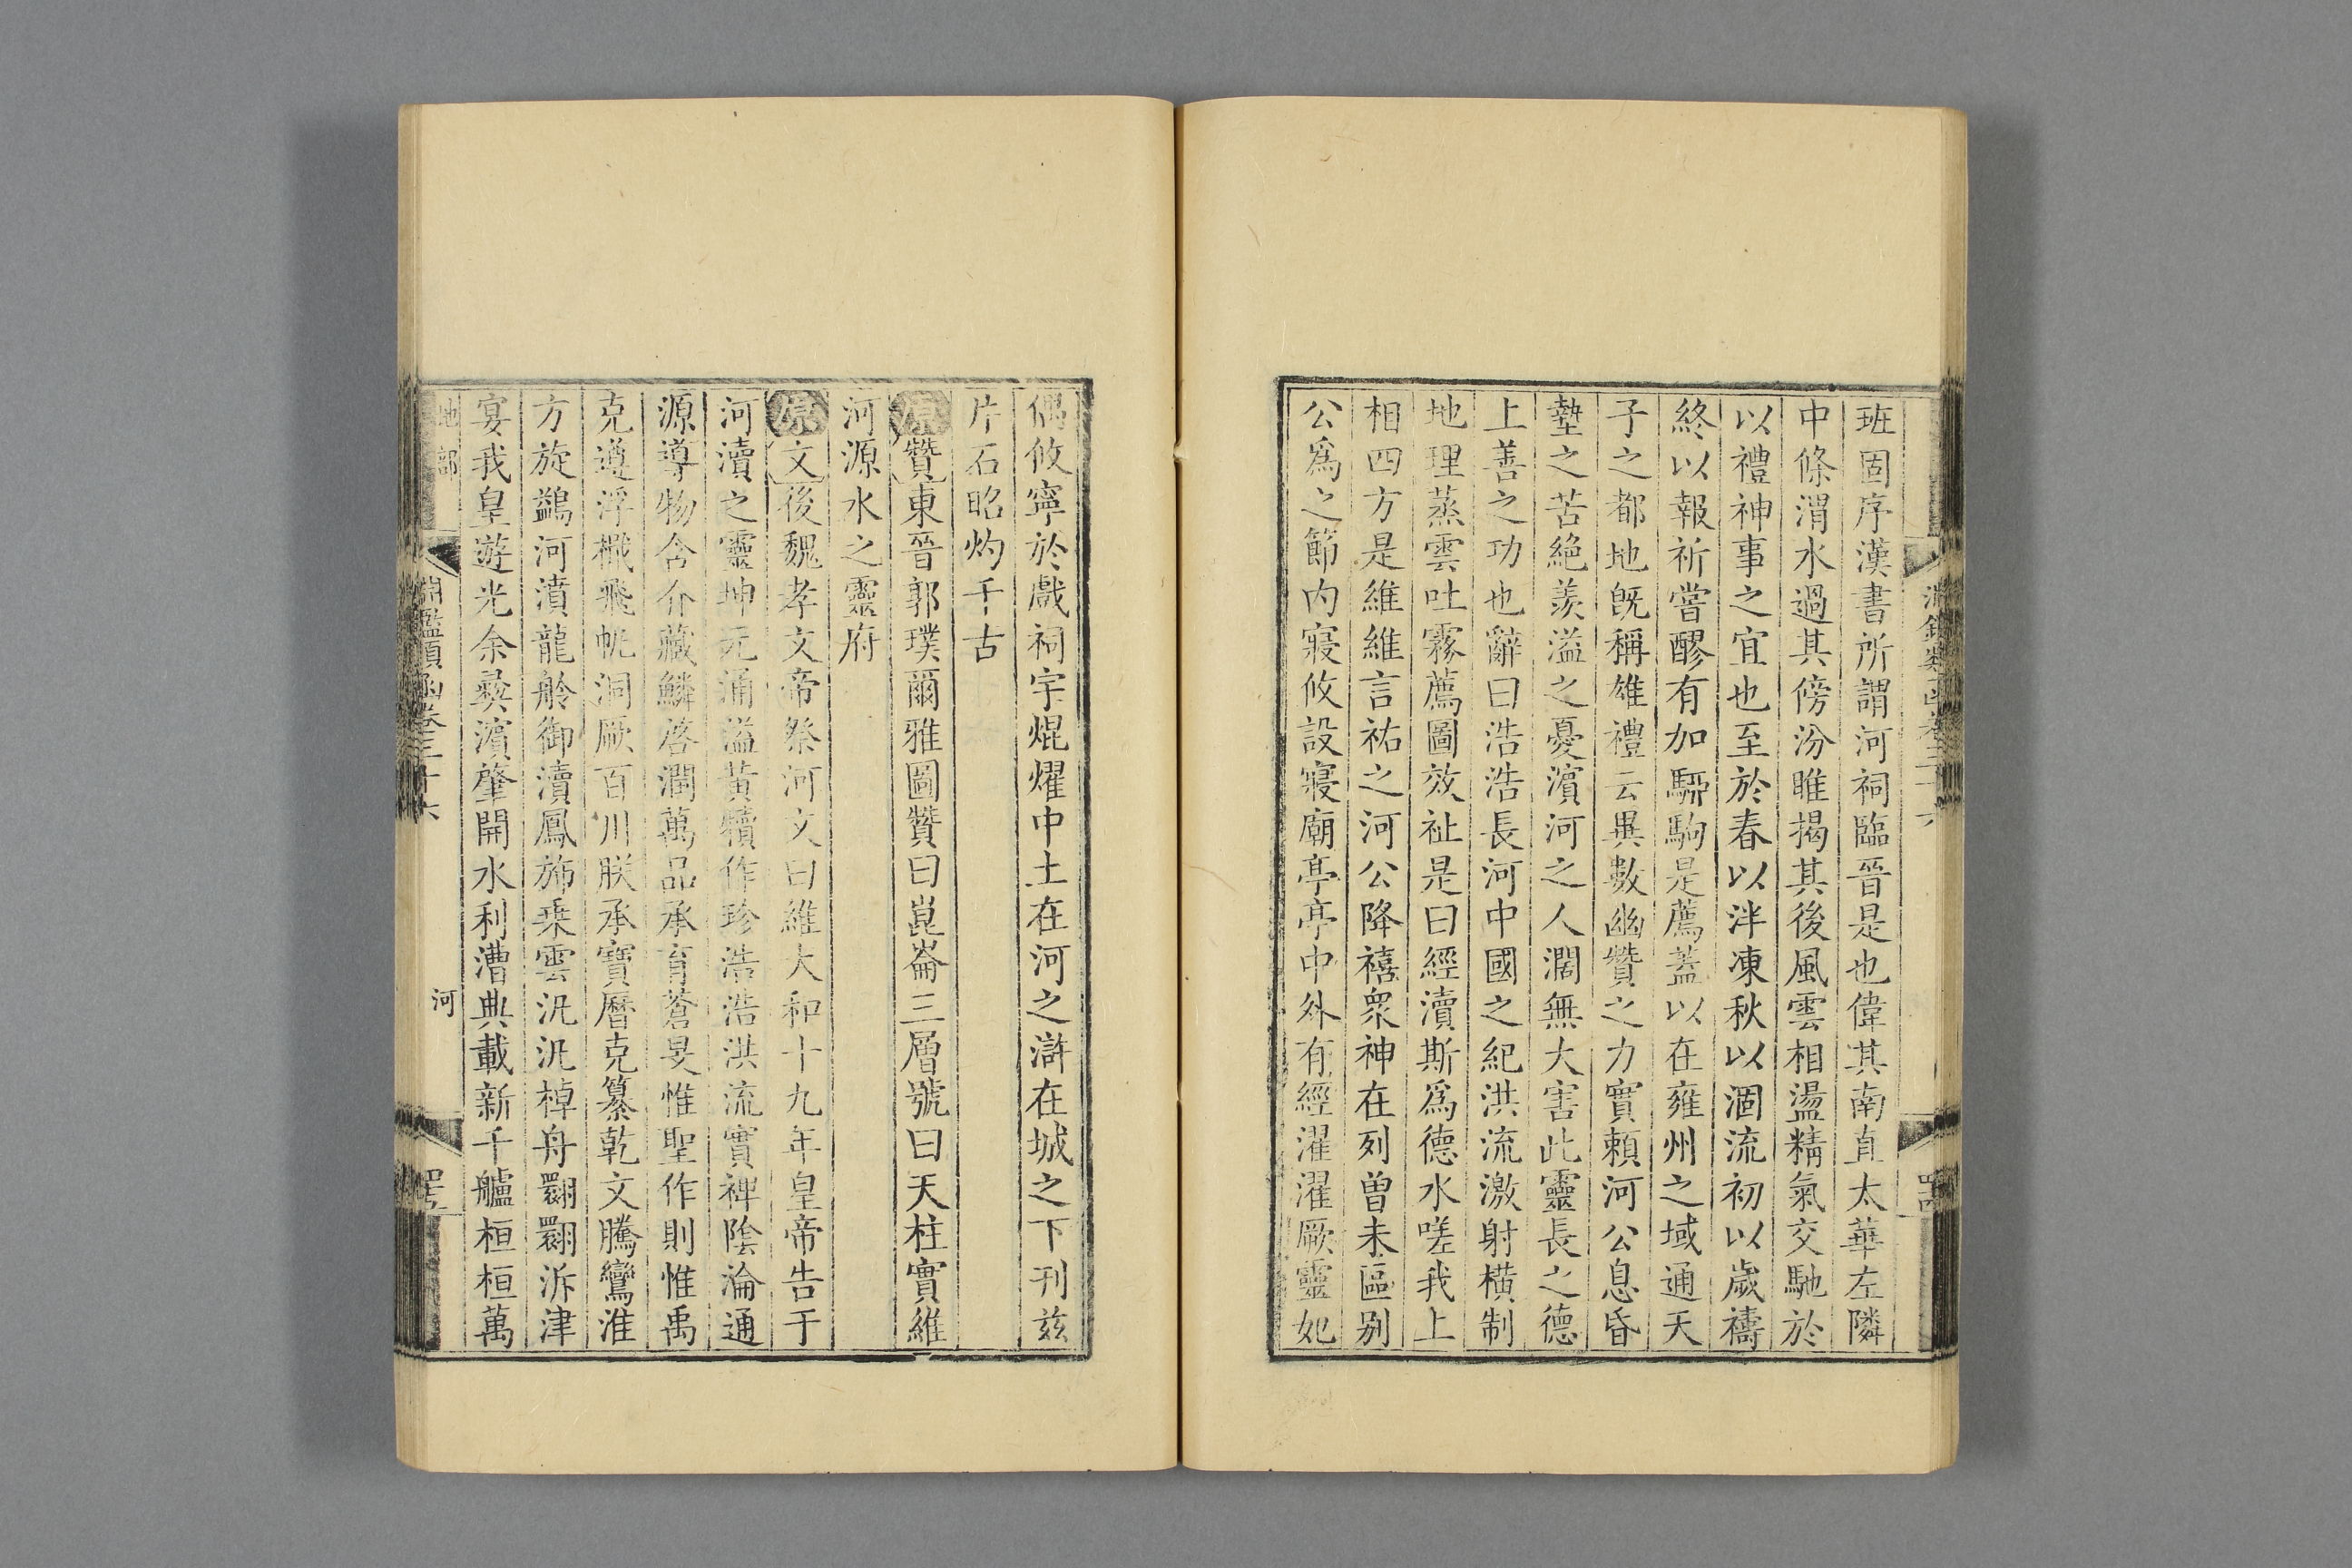 班固序漢書所謂河祠臨晉是也偉其南直太華左隣
中條渭水過其傍汾睢揭其後風雲相盪精氣交馳於
以禮神事之宜也至於春以泮凍秋以涸流初以歲禱
終以報祈嘗醪有加騂駒是薦蓋以在雍州之域通天
子之都地旣稱雄禮云異數幽贊之力實賴河公息昏
墊之苦絶羨溢之憂濱河之人濶無大害此靈長之德
上善之功也辭曰浩浩長河中國之紀洪流激射橫制
地理蒸雲吐霧薦圖效祉是曰經瀆斯爲德水嗟我上
相四方是維維言祐之河公降禧衆神在列曾未區别
公爲之節内寢攸設寢廟亭亭中外有經濯濯厥靈妃
偶攸寧於戲祠宇焜燿中土在河之滸在城之下刊兹
片石昭灼千古
原贊東晉郭璞爾雅圖贊曰崑崙三層號曰天柱實維
河源水之靈府
原文後魏孝文帝祭河文曰維大和十九年皇帝告于
河瀆之靈坤元涌溢黄犢作珍浩浩洪流實裨陰淪通
源導物含介藏鱗啓潤萬品承育蒼旻惟聖作則惟禹
克遵浮檝飛帆洞厥百川朕承寶曆克纂乾文騰鸞淮
方旋鷁河濆龍舲御瀆鳳斾乗雲汎汎棹舟翾翾泝津
宴我皇遊光余彝濱肇開水利漕典載新千艫桓桓萬
地部
淵鑑類函卷三十六
河